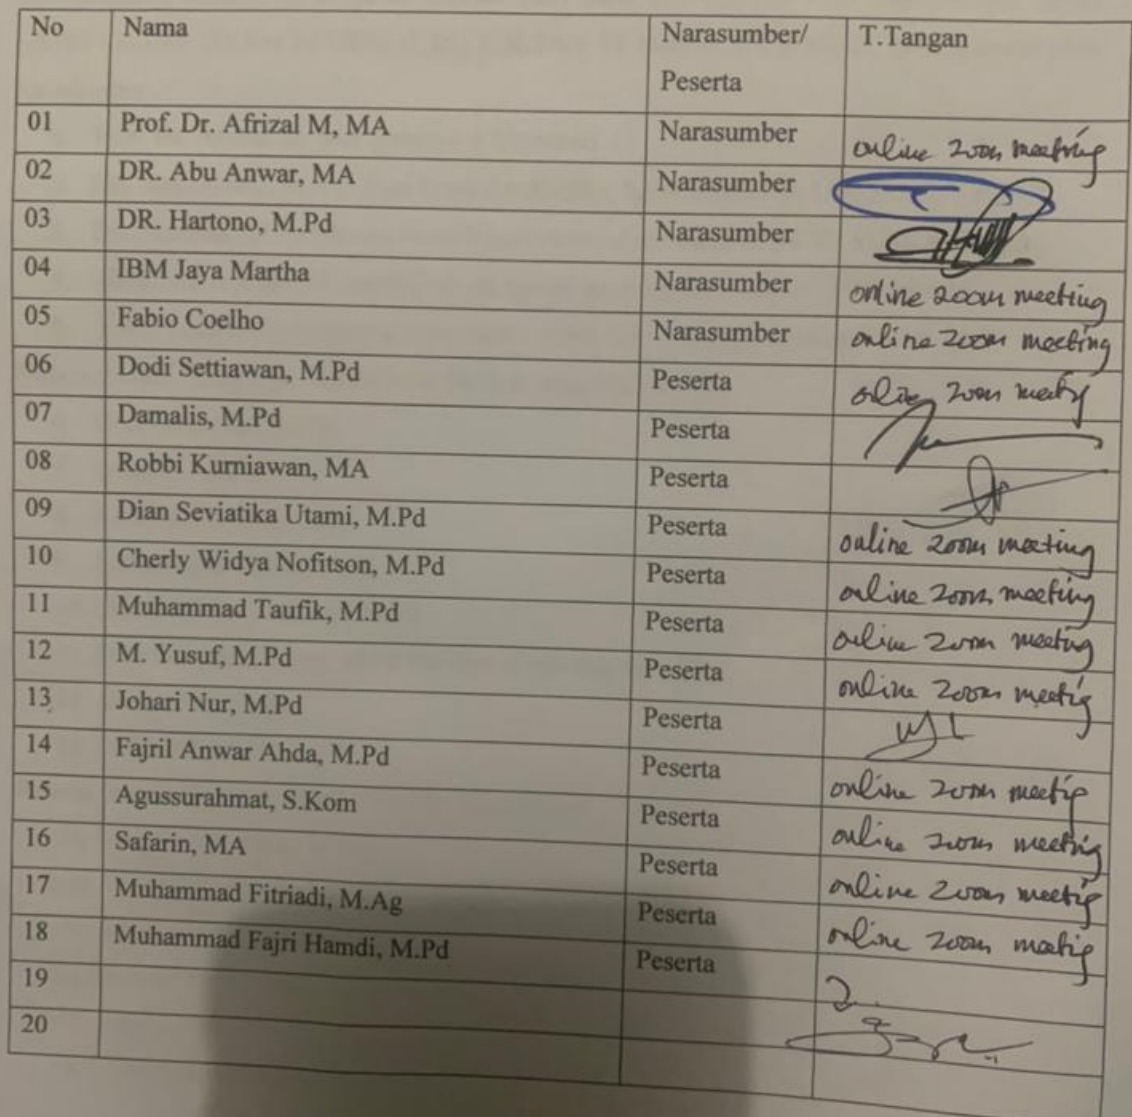 No Nama Narasumber/ T.Tangan
Peserta
01 Prof. Dr. Afrizal M, MA Narasumber online zoom meeting
02 DR. Abu Anwar, MA Narasumber
03 DR. Hartono, M.Pd Narasumber
04 IBM Jaya Martha Narasumber online zoom meeting
05 Fabio Coelho Narasumber online zoom meeting
06 Dodi Settiawan, M.Pd Peserta online zoom meetig
07 Damalis, M.Pd Peserta
08 Robbi Kurniawan, MA Peserta
09 Dian Seviatika Utami, M.Pd Peserta online zoom meeting
10 Cherly Widya Nofitson, M.Pd Peserta online zoom meeting
11 Muhammad Taufik, M.Pd Peserta online zoom meeting
12 M. Yusuf, M.Pd Peserta online zoom meetig
13 Johari Nur, M.Pd Peserta
14 Fajril Anwar Ahda, M.Pd Peserta online zoom meetig
15 Agussurahmat, S.Kom Peserta online zoom meeting
16 Safarin, MA Peserta online zoom meetig
17 Muhammad Fitriadi, M.Ag Peserta online zoom meetig
18 Muhammad Fajri Hamdi, M.Pd Peserta
19
20